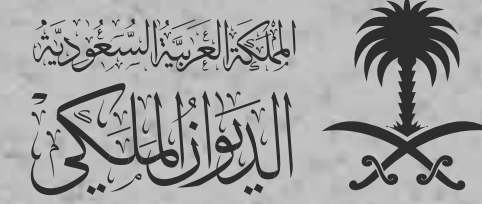 المملكة العربية السعودية
الديوان الملكي